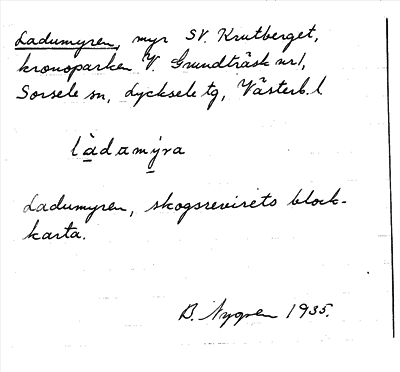 Ladumyren, myr SV. Krutberget,
kronoparken V. Grundträsk nr 1,
Sorsele sn, Lycksele tg, Västerb. l
làdamýra
Ladumyren, skogsrevirets block-
karta.
B. Nygren 1935.